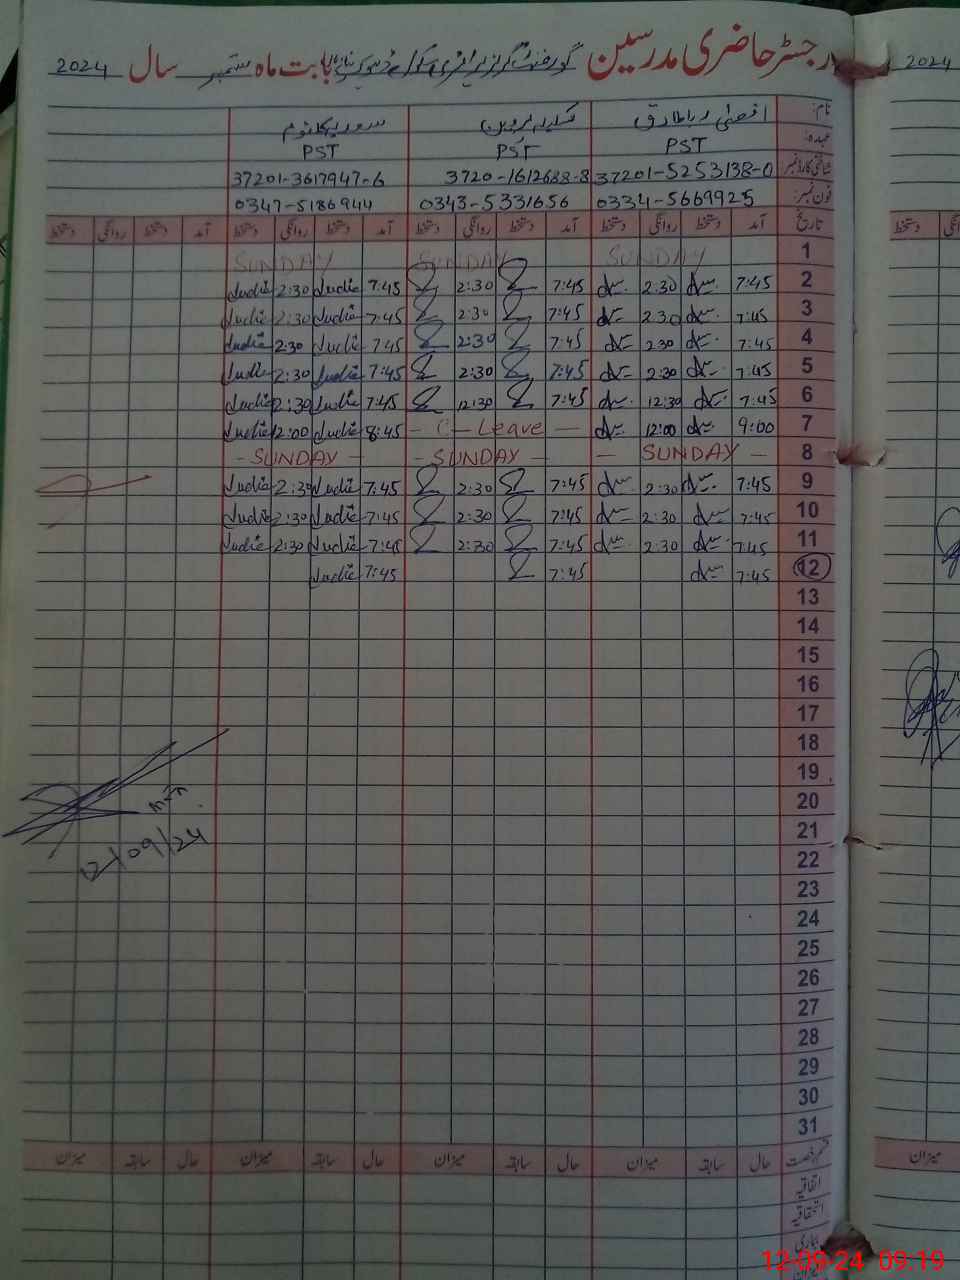 رجسٹر حاضری مدرسین گورنمنٹ گرلز پرائمری سکول بابت ماہ ستمبر سال 2024
2024
نام: افضیٰ طارق پروین کلثوم
عہدہ: PST PST PST
شناختی کارڈ نمبر 37201-5253138-0 3720-1612688-8 37201-3617947-6
فون نمبر: 0334-5669925 0343-5331656 0347-5186944
تاریخ آمد دستخط روانگی دستخط آمد دستخط روانگی دستخط آمد دستخط روانگی دستخط آمد دستخط روانگی دستخط
1 SUNDAY SUNDAY SUNDAY
2 7:45 2:30 7:45 2:30 7:45 Judie 2:30 Judie
3 7:45 2:30 7:45 2:30 7:45 Judie 2:30 Judie
4 7:45 2:30 7:45 2:30 7:45 Judie 2:30 Judie
5 7:45 2:30 7:45 2:30 7:45 Judie 2:30 Judie
6 7:45 12:30 7:45 12:30 7:45 Judie 12:30 Judie
7 9:00 12:00 - C - Leave - 8:45 Judie 12:00 Judie
8 - SUNDAY - - SUNDAY - - SUNDAY -
9 7:45 2:30 7:45 2:30 7:45 Judie 2:30 Judie
10 7:45 2:30 7:45 2:30 7:45 Judie 2:30 Judie
11 7:45 2:30 7:45 2:30 7:45 Judie 2:30 Judie
12 7:45 7:45 7:45 Judie
13
14
15
16
17
18
19
20
21
22
23
24
25
26
27
28
29
30
31
12/09/24
قسم رخصت حال سابقہ میزان حال سابقہ میزان حال سابقہ میزان حال سابقہ میزان
میزان
اتفاقیہ
استحقاقیہ
بیماری
میزان
12-09-24 09:19